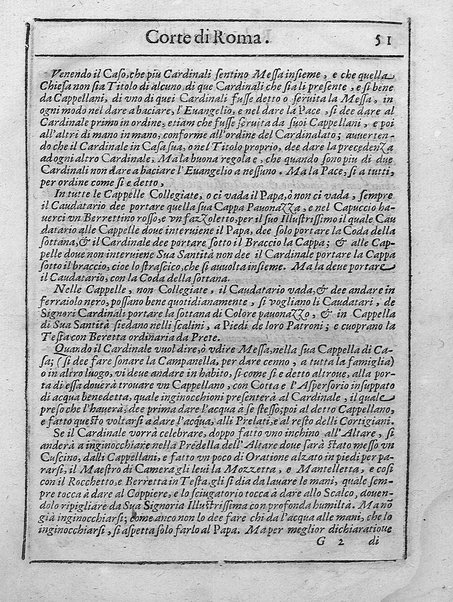 Corte di Roma. 51
Venendo il Caso, che piu Cardinali sentino Messa insieme, e che quella
Chiesa non sia Titolo di alcuno di que Cardinali che sia li presente, e si bene
da Cappellani, di vno di quei Cardinali fusse detto o seruita la Messa, in
ogni modo nel dare a baciare, l'Euangelio, e nel dare la Pace, si dee dare al
Cardinale primo in ordine, etiam che fusse seruita da suoi Cappellani, e poi
all'altri di mano in mano, conforme all'ordine del Cardinalato; auuerten-
do che il Cardinale in Casa sua, o nel Titolo proprio, dee dare la precedenza
ad ogni altro Cardinale. Ma la buona regola e, che quando sono piu di due
Cardinali non dare a baciare l'Euangelio a nessuno. Ma la Pace, si a tutti,
per ordine come si e detto,
In tutte le Cappelle Collegiate, o ci vada il Papa, o non ci vada, sempre
il Caudatario dee portare quella sua Cappa Pauonazza, e nel Capuccio ba
uerci vn Berrettino rosso, e vn fazzoletto, per il suo Illustrissimo il quale Cau
datario alle Cappelle doue interuiene il Papa, dee solo portare la Coda della
sottana, & il Cardinale dee portare sotto il Braccio la Cappa; & alle Cap-
pelle doue non interuiene Sua Santità non dee il Cardinale portare la Cappa
sotto il braccio, cioe lo strascico, che si auuolta insieme. Ma la deue portare
il Caudatario, con la Coda della sottana.
Nelle Cappelle, non Collegiate, il Caudatario vada, & dee andare in
ferraiolo nero, possano bene quotidianamente, si vogliano li Caudatari, de
Signori Cardinali portare la sottana di Colore pauonazzo, & in Cappella
di Sua Santità siedano nelli scalini, a Piedi de loro Patroni; e cuoprano la
Testa con Beretta ordinaria da Prete.
Quando il Cardinale vuol dire, o vdire Messa, nella sua Cappella di Ca-
sa; (si dee fare sonare la Campanella, per dare cenno, a tutta la famiglia)
o in altro luogo, vi deue andare in habito, si come si e detto altroue, alla por
ta di essa douerà trouare vn Cappellano, con Cotta e l'Aspersorio insuppato
di acqua benedetta, quale inginocchioni presenterà al Cardinale, il quale
preso che l'hauerà; dee prima dare l'acqua à se stesso; poi al detto Cappellano,
e fatto questo voltarsi a dare l'acqua, alli Prelati, e al resto delli Cortigiani.
Se il Cardinale vorrà celebrare, doppo fatto vno inchino all'Altare, si
anderà a inginocchiare nella Predella dell'Altare doue sarà stato messo vn
Cuscino, dalli Cappellani, e fatto vn poco di Oratione alzato in piedi per pa-
rarsi, il Maestro di Camera gli leui la Mozzetta, e Mantelletta, e cosi
con il Rocchetto, e Berretta in Testa gli si dia da lauare le mani, quale sem-
pre tocca à dare al Coppiere, e lo sciugatorio tocca à dare allo Scalco, doue-
ndolo ripigliare da Sua Signoria Illustrissima con profonda humiltà. Ma nõ
già inginocchiarsi; come ancor non lo dee fare chi da l'acqua alle mani, che lo
inginocchiarsi, si aspetta solo farlo al Papa. Ma per meglior dichiaratione
G 2 di